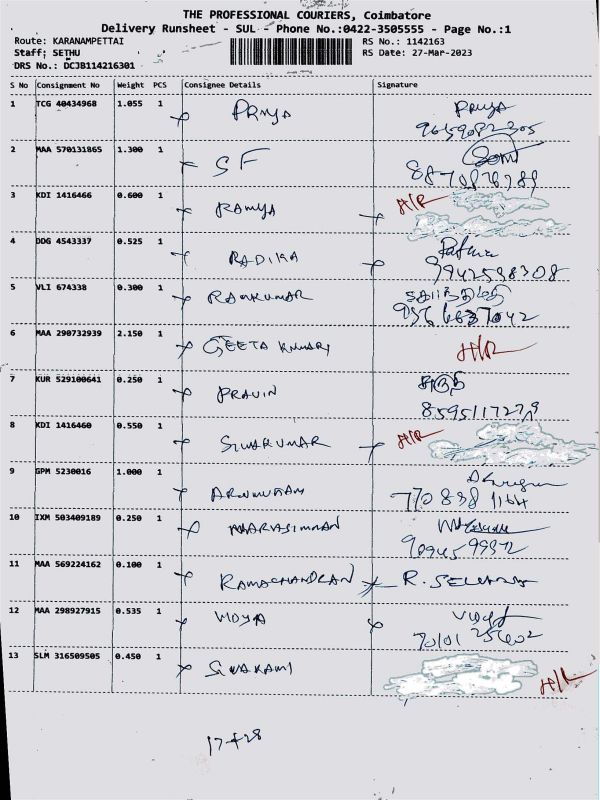 THE PROFESSIONAL COURIERS, Coimbatore
Delivery Runsheet - SUL - Phone No.:0422-3505555 - Page No.:1
Route: KARANAMPETTAI RS No.: 1142163
Staff: SETHU RS Date: 27-Mar-2023
DRS No.: DCJB114216301
S No Consignment No Weight PCS Consignee Details Signature
1 TCG 40434968 1.055 1 PRIYA Priya
2 MAA 570131865 1.300 1 SF
8870876789
3 KDI 1416466 0.600 1 RAMYA H/R
4 DDG 4543337 0.525 1 RADIKA
9942598308
5 VLI 674338 0.300 1 RAMKUMAR
9566637042
6 MAA 290732939 2.150 1 GEETA KUMARI H/R
7 KUR 529100641 0.250 1 PRAVIN
8595117279
8 KDI 1416460 0.550 1 SIVAKUMAR H/R
9 GPM 5230016 1.000 1 ARUMUKAM
770 838 1164
10 IXM 503409189 0.250 1 MAARVASIMMAN
11 MAA 569224162 0.100 1 RAMACHANDRAN R.
12 MAA 298927915 0.535 1 VIDYA Vidya
13 SLM 316509505 0.450 1 SIVAKAMI H/R
17+28